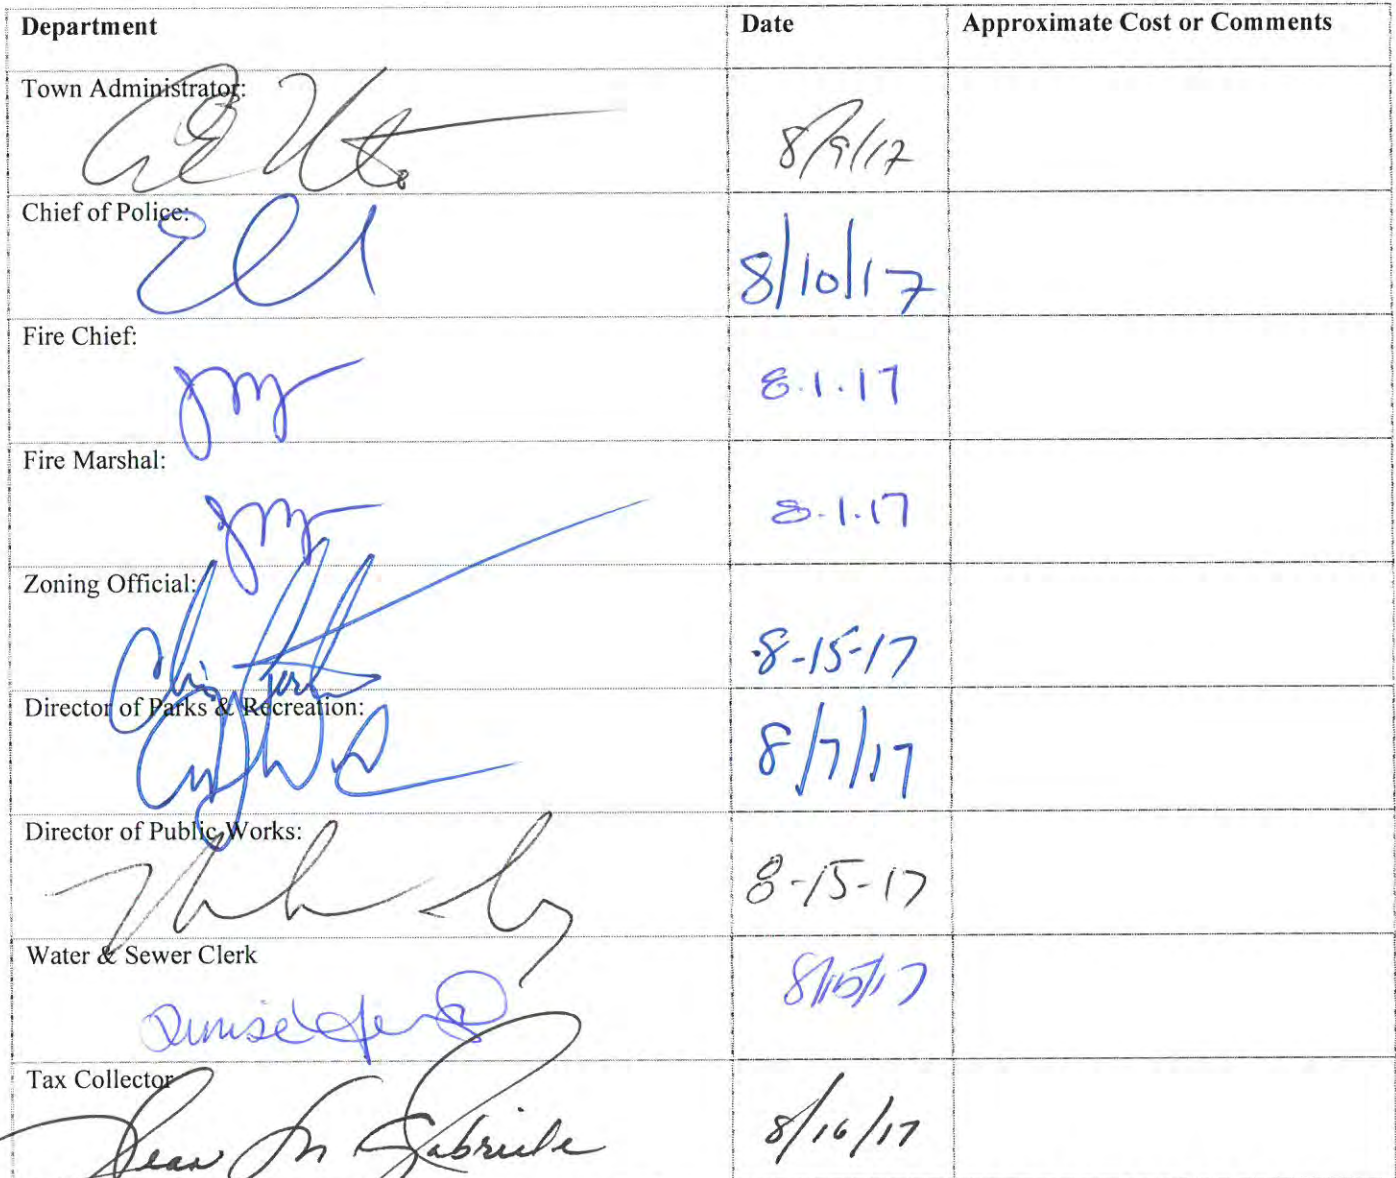 Department Date Approximate Cost or Comments
Town Administrator:
8/9/17
Chief of Police:
8/10/17
Fire Chief:
8.1.17
Fire Marshal:
8.1.17
Zoning Official:
8-15-17
Director of Parks & Recreation:
8/7/17
Director of Public Works:
8-15-17
Water & Sewer Clerk
8/15/17
Denise
Tax Collector
8/16/17
Jean M Gabriele